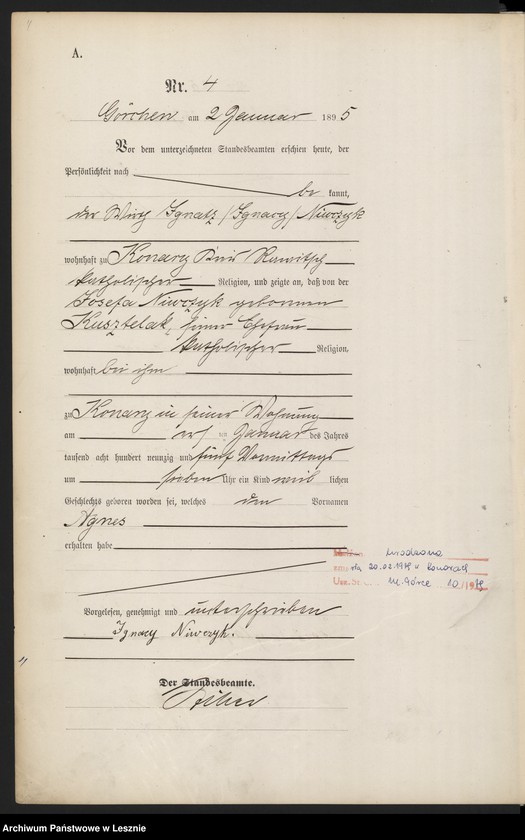 A.
Nr. 4
Görchen am 2 Januar 1895
Vor dem unterzeichneten Standesbeamten erschien heute, der
Persönlichkeit nach
be kannt,
der Wirth Ignatz /Ignacy/ Niwczyk
wohnhaft zu Konary Kreis Rawitsch
katholischer Religion, und zeigte an, daß von der
Josefa Niwczyk geborenen
Kusztelak, seiner Ehefrau
katholischer Religion,
wohnhaft bei ihm
zu Konary in seiner Wohnung
am ersten Januar des Jahres
tausend acht hundert neunzig und fünf Vormittags
um sieben Uhr ein Kind weib lichen
Geschlechts geboren worden sei, welches den Vornamen
Agnes
erhalten habe
20.02.1979 w Konarach
M. Górce 10/1979
Vorgelesen, genehmigt und unterschrieben
Ignacy Niwczyk.
Der Standesbeamte.
Archiwum Państwowe w Lesznie